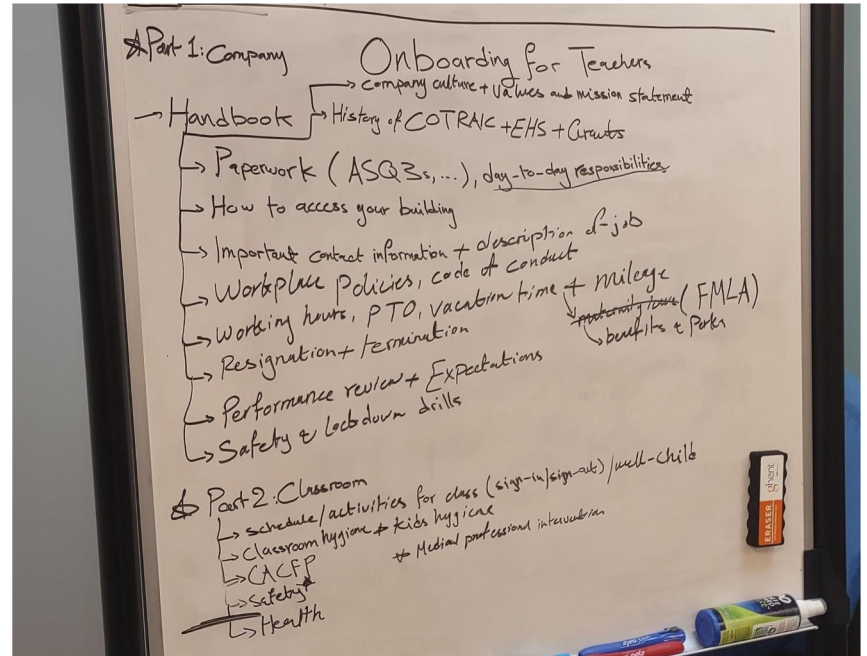 Onboarding for Teachers
☆ Part 1: Company
→ Handbook
→ Company culture + values and mission statement
→ History of COTRAIC + EHS + Grants
→ Paperwork (ASQ3s, ...), day-to-day responsibilities
→ How to access your building
→ Important contact information + description of job
→ Workplace policies, code of conduct
→ Working hours, PTO, vacation time + mileage
(FMLA)
→ benefits & Perks
→ Resignation + termination
→ Performance review + Expectations
→ Safety & lockdown drills
☆ Part 2: Classroom
→ schedule/activities for class (sign-in/sign-out)/well-child
→ Classroom hygiene + kids hygiene
* Medical professional intervention
→ CACFP
→ Safety*
→ Health
ERASER ghent